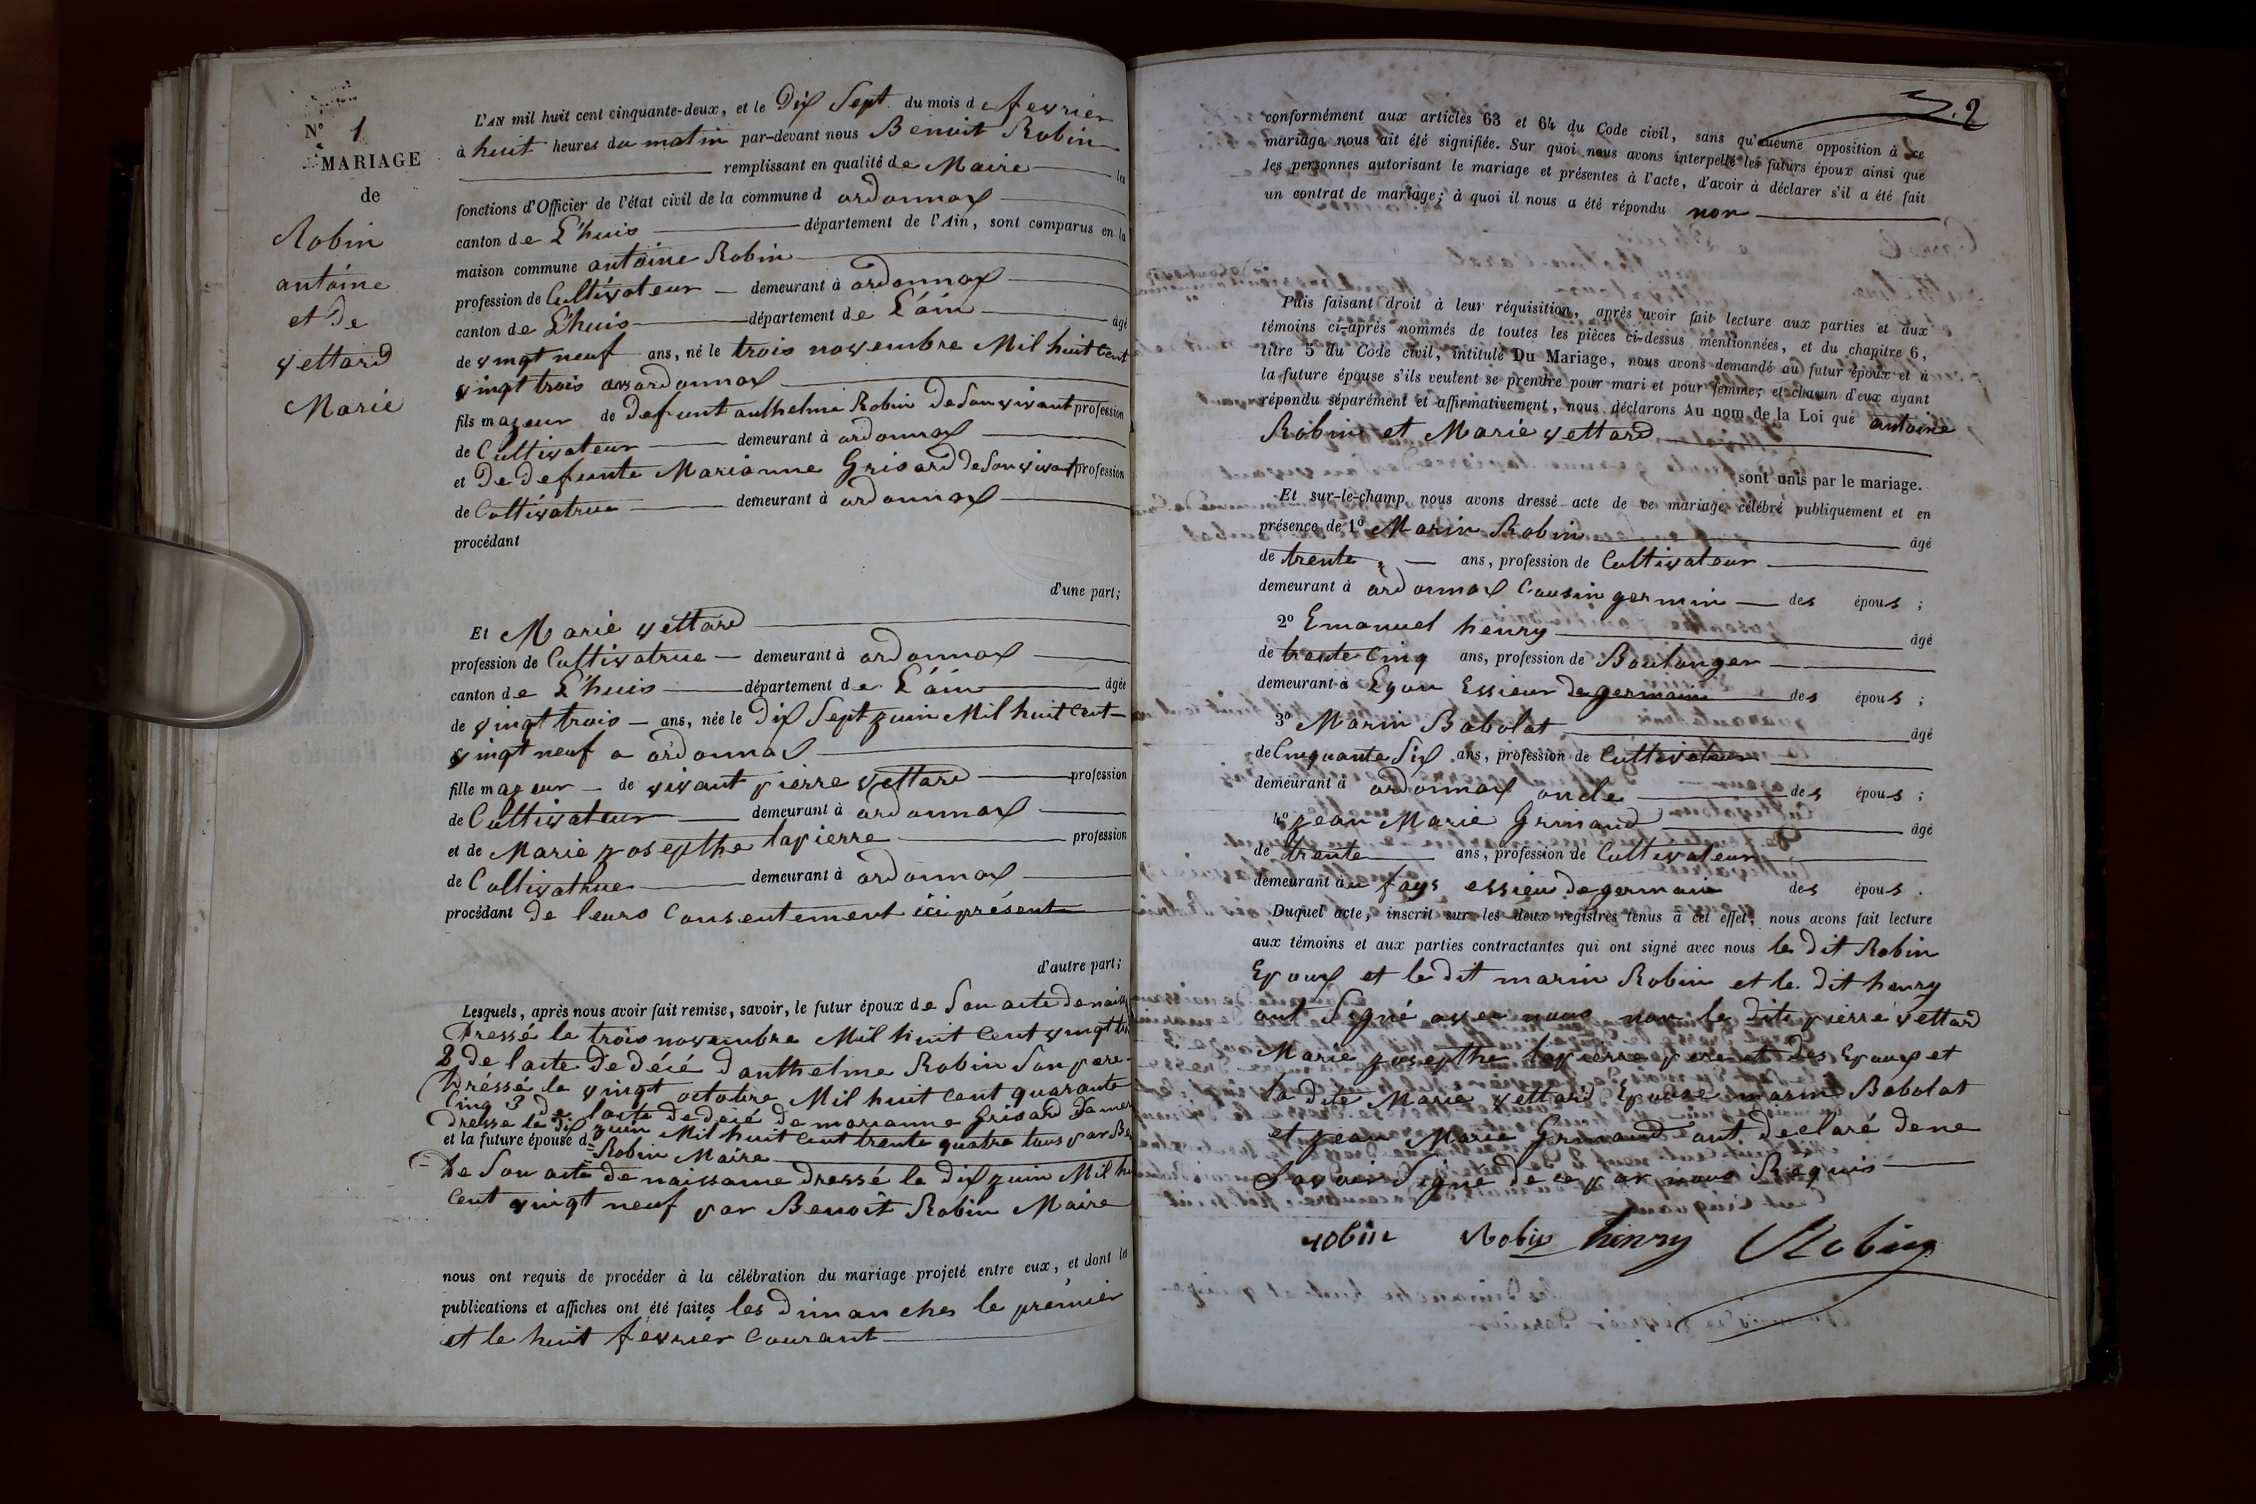 N° 1
MARIAGE
de
Robin
antoine
et De
vettard
Marie
L'AN mil huit cent cinquante-deux, et le Dix Sept du mois de fevrier
à huit heures du matin par-devant nous Benoit Robin
remplissant en qualité de Maire les
fonctions d'Officier de l'état civil de la commune d ordonnax
canton de L'huis département de l'Ain, sont comparus en la
maison commune antoine Robin
profession de Cultivateur demeurant à ordonnax
canton de L'huis département de L'ain âgé
de vingt neuf ans, né le trois novembre Mil huit Cent
vingt trois a ordonnax
fils majeur de defunt anthelme Robin De Son vivant profession
de Cultivateur demeurant à ordonnax
et De defunte Marianne Grisard de Son vivant profession
de Cultivatrice demeurant à ordonnax
procédant
d'une part;
Et Marie vettard
profession de Cultivatrice demeurant à ordonnax
canton de L'huis département de L'ain âgée
de vingt trois ans, née le Dix Sept juin Mil huit Cent
vingt neuf a ordonnax
fille majeur de vivant pierre vettard profession
de Cultivateur demeurant à ordonnax
et de Marie josepthe lapierre profession
de Cultivatrice demeurant à ordonnax
procédant de leurs Consentement ici présent
d'autre part;
Lesquels, après nous avoir fait remise, savoir, le futur époux de Son acte de naiss
Dressé le trois novembre Mil huit Cent vingt
2 de l'acte De déié D'anthelme Robin Son pere
Dréssé le vingt octobre Mil huit Cent quarante
Cinq 3 de l'acte de déié de marianne Grisard Sa mer
Dresse le dix juin Mil huit Cent trente quatre tous par Be
et la future épouse d Robin Maire
De Son acte de naissance Dressé le dix juin Mil hu
Cent vingt neuf par Benoit Robin Maire
nous ont requis de procéder à la célébration du mariage projeté entre eux, et dont les
publications et affiches ont été faites les Dimanches le prémier
et le huit février Courant
2
conformément aux articles 63 et 64 du Code civil, sans qu'aucune opposition à ce
mariage nous ait été signifiée. Sur quoi nous avons interpellé les futurs époux ainsi que
les personnes autorisant le mariage et présentes à l'acte, d'avoir à déclarer s'il a été fait
un contrat de mariage; à quoi il nous a été répondu non
Puis faisant droit à leur réquisition, après avoir fait lecture aux parties et aux
témoins ci-après nommés de toutes les pièces ci-dessus mentionnées, et du chapitre 6,
titre 5 du Code civil, intitulé Du Mariage, nous avons demandé au futur époux et à
la future épouse s'ils veulent se prendre pour mari et pour femme; et chacun d'eux ayant
répondu séparément et affirmativement, nous déclarons Au nom de la Loi que antoine
Robin et Marie vettard
sont unis par le mariage.
Et sur-le-champ nous avons dressé acte de ce mariage célébré publiquement et en
présence de 1° Marin Robin âgé
de trente ans, profession de Cultivateur
demeurant à ordonnax Cousin germin des épous ;
2° Emanuel henry âgé
de trente Cinq ans, profession de Boulanger
demeurant à Lyon Essieur de germain des épous ;
3° Marin Babolat âgé
de Cinquante Six ans, profession de Cultivateur
demeurant à ordonnax oncle des épous ;
4° jean Marie Grinand âgé
de trente ans, profession de Cultivateur
demeurant au fays essieu de germain des épous .
Duquel acte, inscrit sur les deux registres tenus à cet effet, nous avons fait lecture
aux témoins et aux parties contractantes qui ont signé avec nous le dit Robin
Epoux et le dit marin Robin et le dit henry
ont Signé avec nous non le dite pierre vettard
Marie josepthe lapierre pere et des Epoux et
la dite Marie vettard Epouse marin Babolat
et jean Marie Grinand ont declaré de ne
Savoir Signé de ce par nous Requis
robin Robin henry Robin